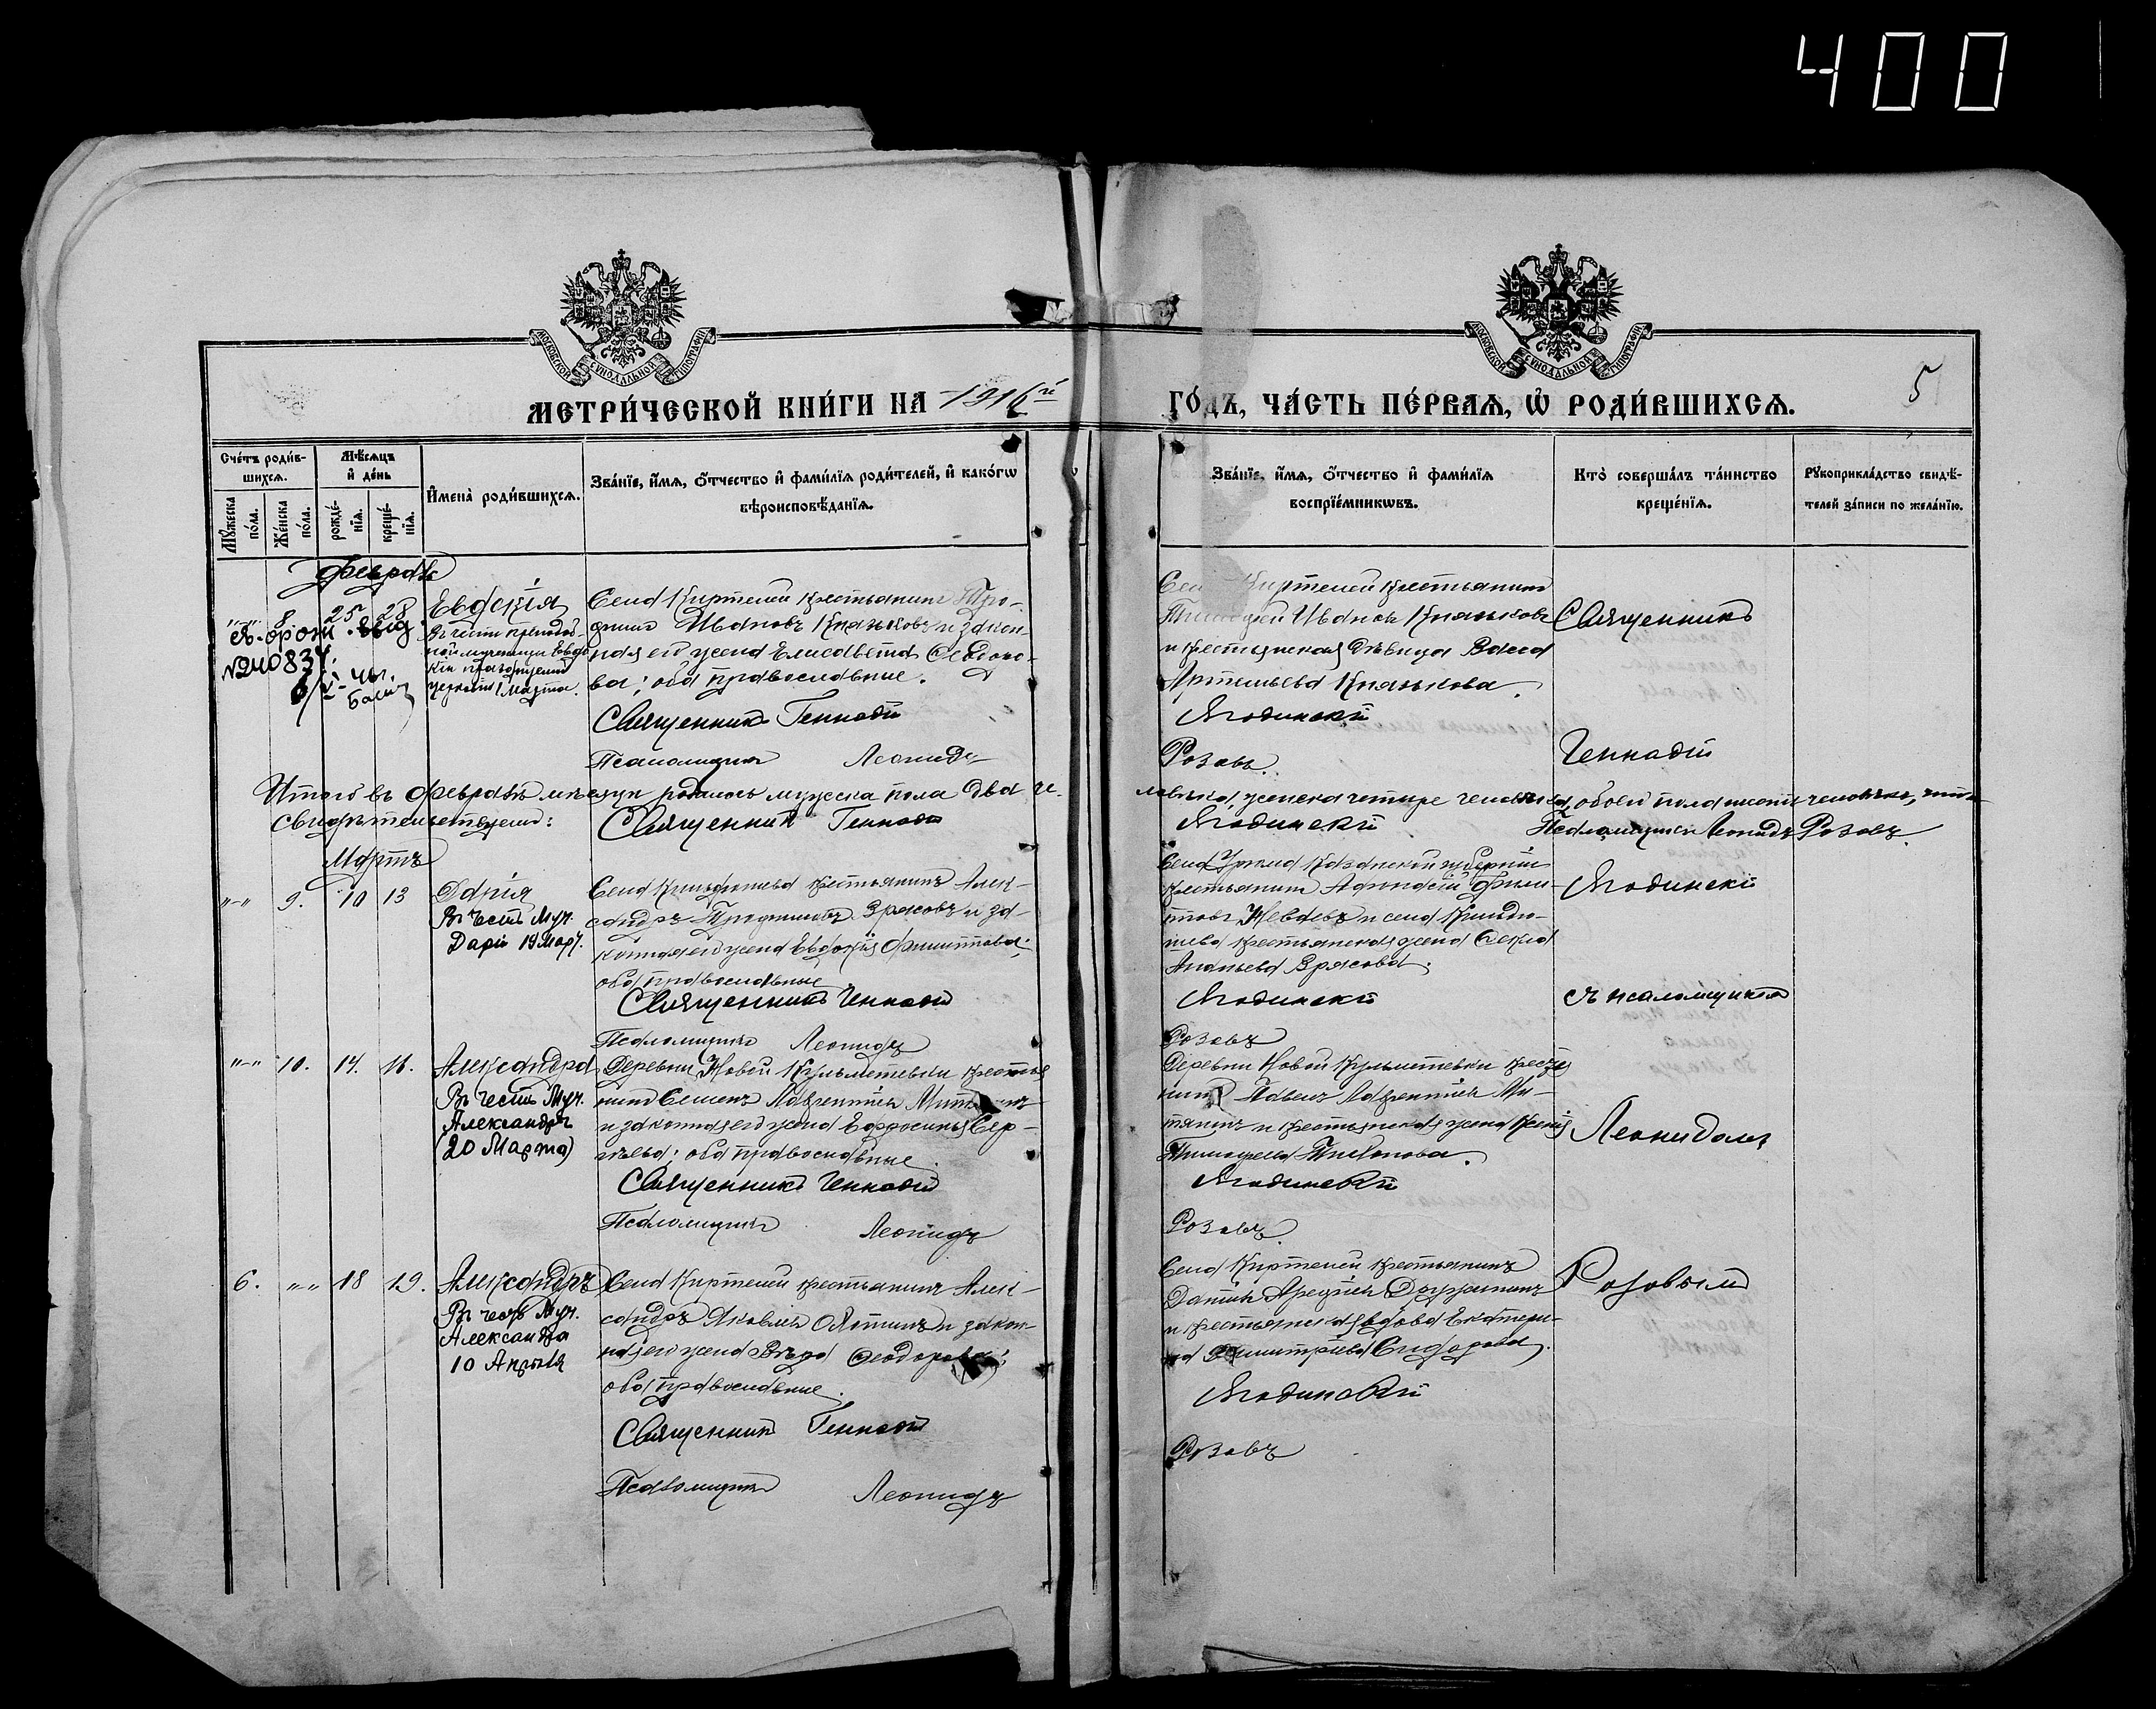 400
МОСКОВСКОЙ СѴНОДАЛЬНОЙ ТИПОГРАФІИ
МОСКОВСКОЙ СѴНОДАЛЬНОЙ ТИПОГРАФІИ
5
МЕТРИ́ЧЕСКОЙ КНИ́ГИ НА 1916й ГО́ДЪ, ЧА́СТЬ ПЕ́РВАЯ, Ѡ҆ РОДИ́ВШИХСЯ.
Сче́тъ роди́в-
шихся.
Му́жеска
по́ла.
Же́нска
по́ла.
Мѣ́сяцъ
и҆ де́нь
рожде́-
нїя.
креще́-
нїя.
И҆мена̀ роди́вшихся.
Зва́нїе, и҆́мя, ѻ҆́тчество и҆ фами́лїя роди́телей, и҆ како́гѡ
вѣроисповѣ́данїя.
Зва́нїе, и҆́мя, ѻ҆́тчество и҆ фами́лїя
воспрїе́мникѡвъ.
Кто̀ соверша́лъ та́инство
креще́нїя.
Рꙋкоприкла́дство свидѣ́-
телей за́писи по жела́нїю.
Февраль
"-" 8. 25 28
№240837.
Евдокія
Въ честь преподоб-
Села Киртелей крестьянинъ Тро-
фимъ Ивановъ Князьковъ и закон-
ная его жена Елисавета Ѳеодоро-
ва; оба православные.
Священникъ Геннадій
Псаломщикъ Леонидъ
Киртелей крестьянинъ
Ивановъ Князьковъ
и крестьянская дѣвица Васса
Артемьева Князькова.
Ягодинскій
Розовъ.
Священникъ
Геннадій
Итого въ февралѣ мѣсяцѣ родилось мужеска пола два че-
ловѣка, женска четыре человѣка, обоего пола шесть человѣкъ, что
свидѣтельствуемъ: Священникъ Геннадій Ягодинскій Псаломщикъ Леонидъ Розовъ.
Мартъ
"-" 9. 10 13
Дарія
Въ честь Муч.
Даріи 19 Март.
Села крестьянинъ Алек-
сандръ Трофимовъ и за-
конная его жена Евдокія Филиппова;
оба православные
Священникъ Геннадій
Псаломщикъ Леонидъ
Села Казанской губерніи
крестьянинъ Филип-
повъ и села
крестьянская жена Ѳекла
Ананьева
Ягодинскій
Розовъ
Ягодинскій
съ псаломщикомъ
"-" 10. 14. 16.
Александра
Въ честь Муч.
Александры
(20 Марта)
Деревни Новой крестья
нинъ Семенъ Лаврентіевъ
и законная его жена Евфросинья Сер-
гѣева; оба православные.
Священникъ Геннадій
Псаломщикъ Леонидъ
Деревни Новой крестья
нинъ Павелъ Лаврентіевъ Ми-
и крестьянская жена
Тимофеева Тихонова.
Ягодинскій
Розовъ.
Леонидомъ
6. "-" 18 19.
Александръ
Въ честь Муч.
Александра
10 Апрѣля
Села Киртелей крестьянинъ Алек-
сандръ Яковлевъ и закон-
ная его жена Вѣра Ѳеодорова;
оба православные.
Священникъ Геннадій
Псаломщикъ Леонидъ
Села Киртелей крестьянинъ
и крестьянская вдова Екатери-
на Димитріева Сидорова.
Ягодинскій
Розовъ
Розовымъ